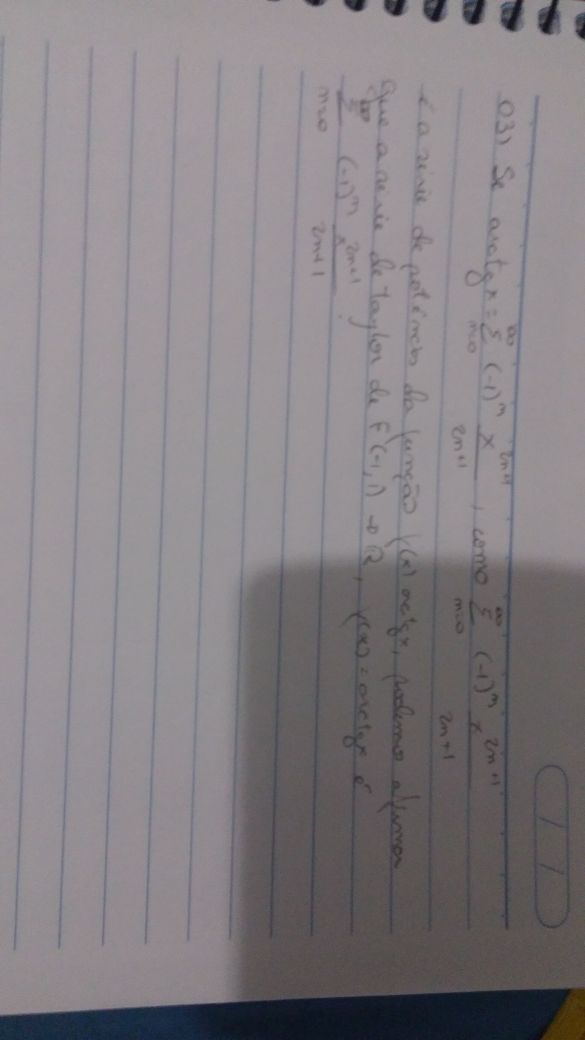 03) Se arctgx = ∞Σn=0 (-1)^n x^2n+1 / 2n+1, como ∞Σn=0 (-1)^n x^2n+1 / 2n+1
é a série de potências da função f(x) arctgx, podemos afirmar
que a série de taylor de F (-1,1) → R, f(x) = arctgx é
∞Σn=0 (-1)^n x^2n+1 / 2n+1.